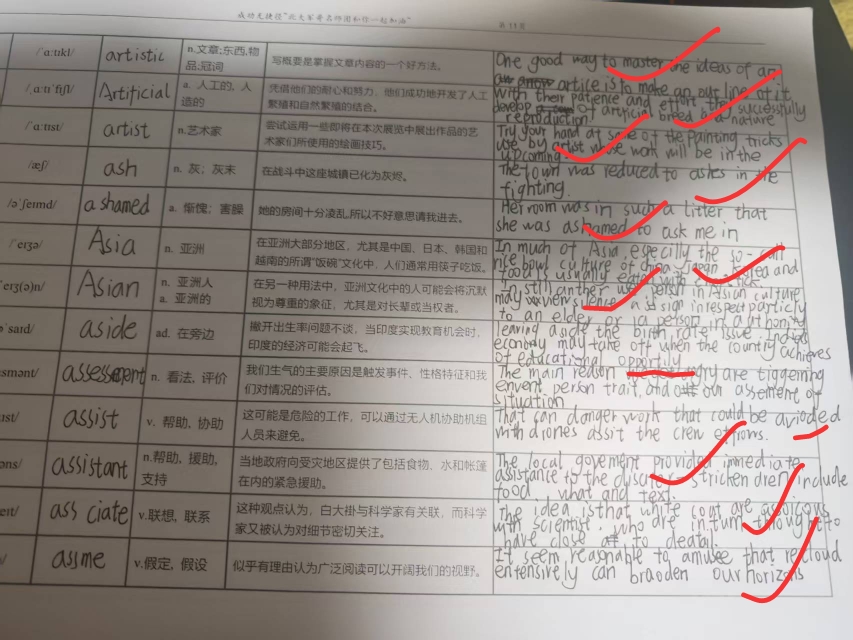 成功无捷径"跟
第 15 页
/ˈɑːtɪkl/ artistic n.文章;东西,物品;冠词 写概要是掌握文章内容的一个好方法。
One good way to master the ideas of an
artice is to make an out line of it
/ˌɑːtɪˈfɪʃl/ Artificial a. 人工的, 人造的 凭借他们的耐心和努力, 他们成功地开发了人工繁殖和自然繁殖的结合。
With their patience and effort they successfully
develop of artificial breed and nature
reproduction.
/ˈɑːtɪst/ artist n.艺术家 尝试运用一些即将在本次展览中展出作品的艺术家们所使用的绘画技巧。
Try your hand at some of the painting tricks
use by artist whose work will be in the
upcoming
/æʃ/ ash n. 灰; 灰末 在战斗中这座城镇已化为灰烬。
The town was reduced to ashes in the
fighting.
/əˈʃeɪmd/ ashamed a. 惭愧; 害臊 她的房间十分凌乱,所以不好意思请我进去。
Her room was in such a litter, that
she was ashamed to ask me in
/ˈeɪʒə/ Asia n. 亚洲 在亚洲大部分地区, 尤其是中国、日本、韩国和越南的所谓"饭碗"文化中, 人们通常用筷子吃饭。
In much of Asia, especilly the so-call
rice bowl culture of china Japan
food is usually eaten with
/ˈeɪʒ(ə)n/ Asian n. 亚洲人 a. 亚洲的 在另一种用法中, 亚洲文化中的人可能会将沉默视为尊重的象征, 尤其是对长辈或当权者。
In still another person in Asian culture
may silence a sign in respect particly
to an elder or a person in authority
əˈsaɪd/ aside ad. 在旁边 撇开出生率问题不谈, 当印度实现教育机会时, 印度的经济可能会起飞。
leaving aside the birth rate issue
economy may take off when the country achieves
of educational opportily
smənt/ assessment n. 看法, 评价 我们生气的主要原因是触发事件、性格特征和我们对情况的评估。
The main reason angry are tiggerening
envent person trait, and our assement of
situation
ɪst/ assist v. 帮助, 协助 这可能是危险的工作, 可以通过无人机协助机组人员来避免。
That can danger work that could be avioded
with drones assit the crew
əns/ assistant n.帮助, 援助, 支持 当地政府向受灾地区提供了包括食物、水和帐篷在内的紧急援助。
The local goverment provided immediate
assistance to the stricken include
food, and text.
eɪt/ ass ciate v.联想, 联系 这种观点认为, 白大褂与科学家有关联, 而科学家又被认为对细节密切关注。
The idea is that white coat are
with scientist, who are in turn thought to
have close to deatal.
/ assme v.假定, 假设 似乎有理由认为广泛阅读可以开阔我们的视野。
It seem reasonable to amuse that
entensively can braoden our horizons